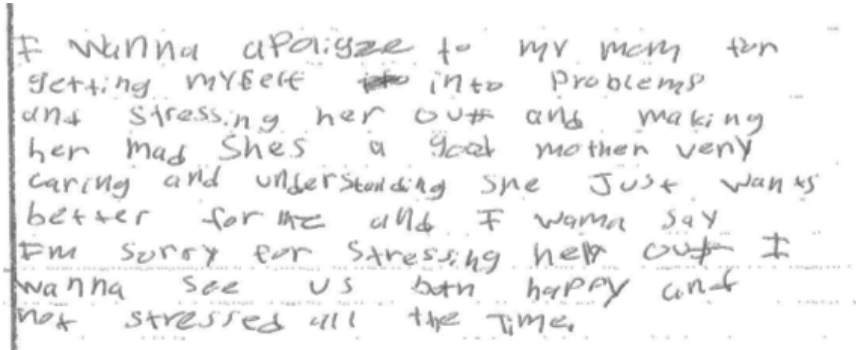 I wanna apoligze to my mom for
getting myself into problems
and stressing her out and making
her mad Shes a good mother very
caring and understanding she Just wants
better for me and I wanna say
Im sorry for stressing her out I
wanna see us both happy and
not stressed all the Time.